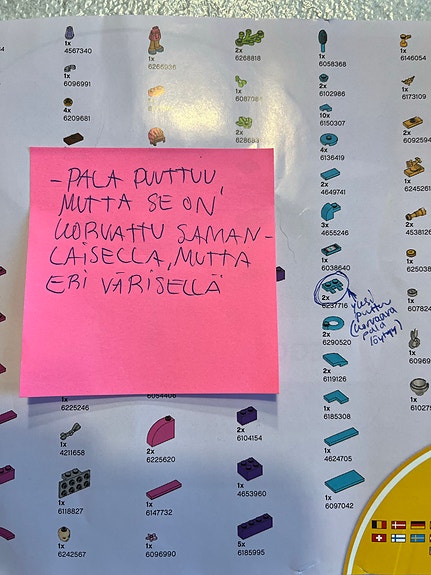 1x
4567340
1x
6096991
4x
6209681
1x
6266936
1x
2x
6268818
1x
2x
1x
6058368
2x
6102986
10x
6150307
4x
6136419
2x
4649741
3x
4655246
1x
6038640
2x
6237716
2x
6290520
2x
6119126
1x
6185308
1x
4624705
1x
6097042
1x
6146054
1x
6173109
2x
1x
2x
1x
1x
1x
1x
- PALA PUUTTUU,
MUTTA SE ON
KORVATTU SAMAN-
LAISELLA, MUTTA
ERI VÄRISELLÄ
yksi
puttuu
(korvaava
pala
löytyy)
6225246
1x
4211658
1x
6118827
1x
6242567
6054406
2x
6225620
1x
6147732
1x
6096990
2x
6104154
1x
4653960
5x
6185995